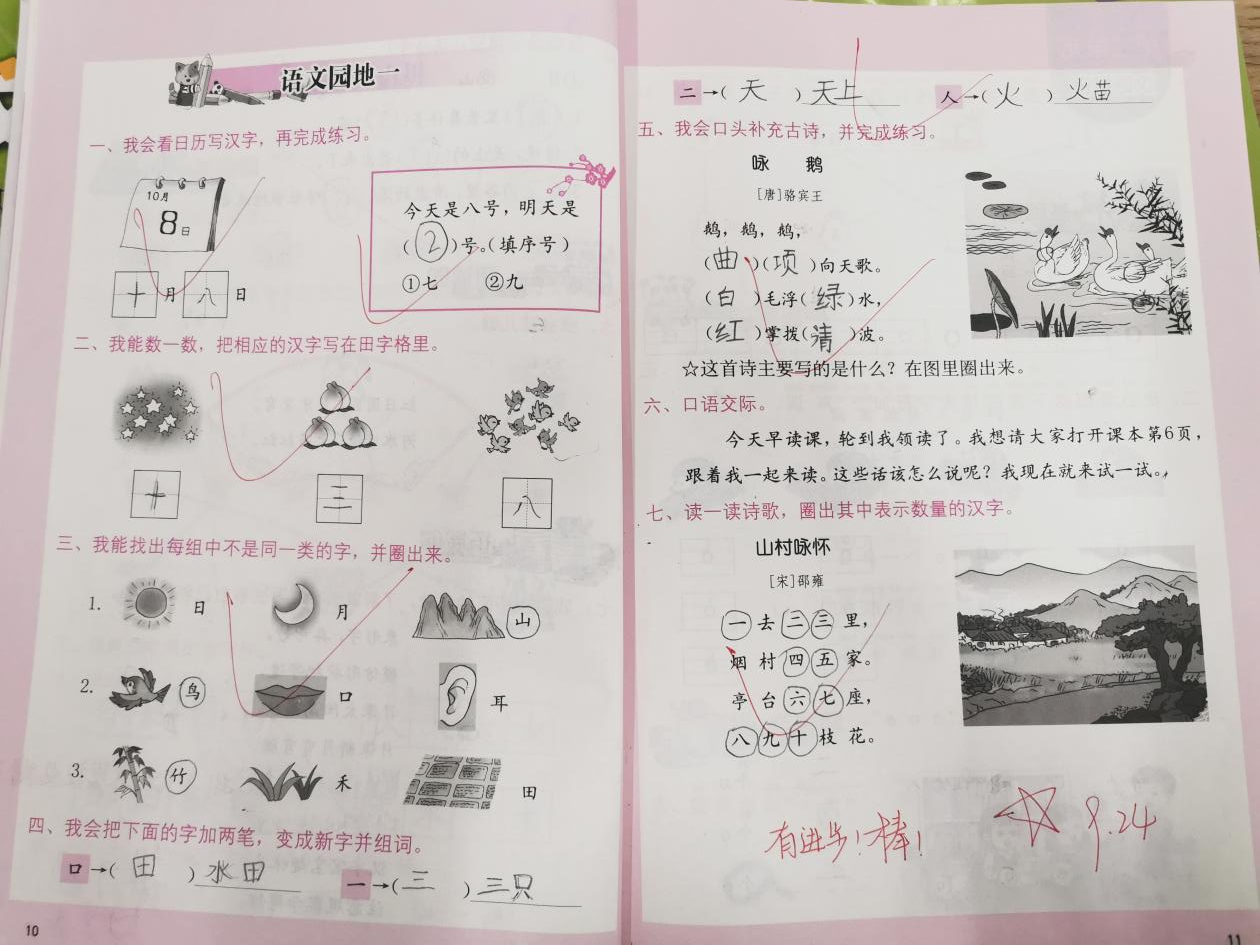 语文园地一
一、我会看日历写汉字，再完成练习。
10月
8日
十月八日
今天是八号，明天是
（2）号。（填序号）
①七 ②九
二、我能数一数，把相应的汉字写在田字格里。
十 三 八
三、我能找出每组中不是同一类的字，并圈出来。
1. 日 月 山
2. 鸟 口 耳
3. 竹 禾 田
四、我会把下面的字加两笔，变成新字并组词。
口→（田）水田 一→（三）三只
10
二→（天）天上 人→（火）火苗
五、我会口头补充古诗，并完成练习。
咏 鹅
［唐］骆宾王
鹅，鹅，鹅，
（曲）（项）向天歌。
（白）毛浮（绿）水，
（红）掌拨（清）波。
☆这首诗主要写的是什么？在图里圈出来。
六、口语交际。
今天早读课，轮到我领读了。我想请大家打开课本第6页，
跟着我一起来读。这些话该怎么说呢？我现在就来试一试。
七、读一读诗歌，圈出其中表示数量的汉字。
山村咏怀
［宋］邵雍
一去二三里，
烟村四五家。
亭台六七座，
八九十枝花。
有进步！棒！ 9.24
11